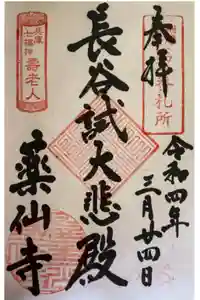 奉拝
札所
令和四年
三月廿四日
長谷試大悲殿
兵庫
七福神
壽老人
薬仙寺